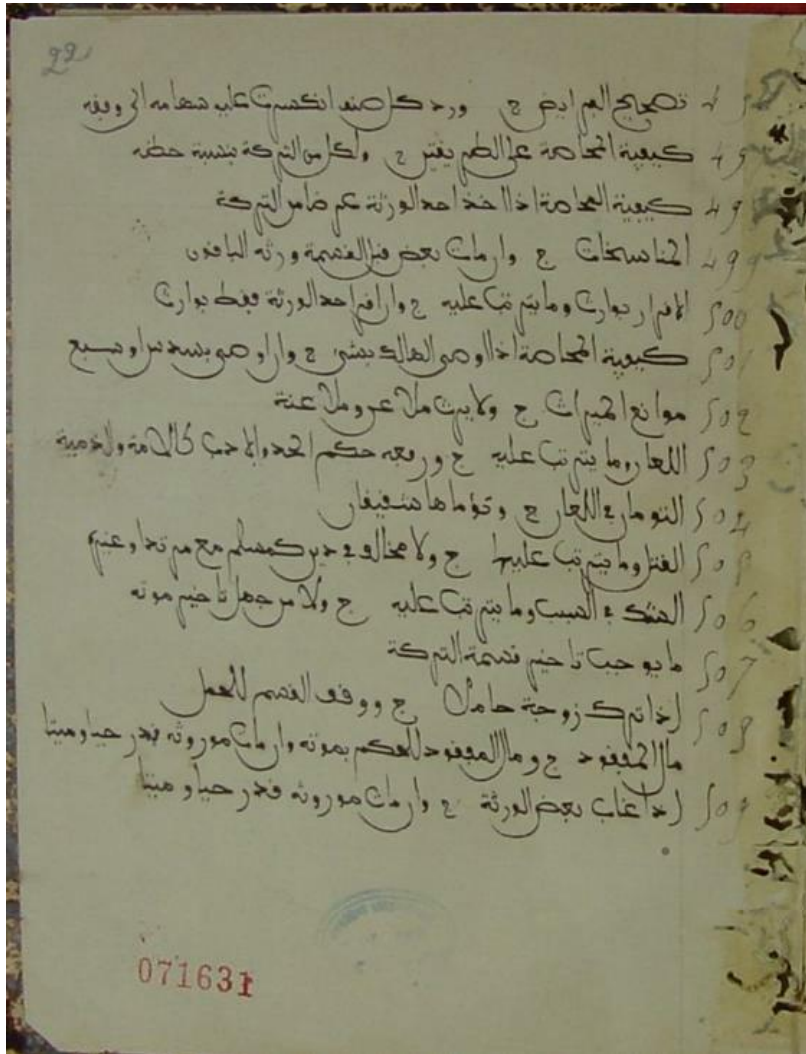 22
تصحيح الفرايض ج ورد كل صنف انكسرت عليه سهامه الى وفقه
كيفية المحاصة على الطريقتين ج ولكل من التركة بنسبة حظه
كيفية المحاصة اذا اخذ احد الورثة عرضا من التركة
499 المناسخات ج وان مات بعض قبل القسمة ورثه الباقون
500 الاقرار بوارث وما يترتب عليه ج وان اقر احد الورثة فقط بوارث
501 كيفية المحاصة اذا اوصى الهالك بشيء ج وان اوصى بسدس او سبع
502 موانع الميراث ج ولا يرث ملاعن وملاعنة
503 اللعان وما يترتب عليه ج ورفعه حكم الحد او الادب كالامة والذمية
504 التومان في اللعان ج وتؤماها شقيقان
505 القتل وما يترتب عليه ج ولا مخالف في دين كمسلم مع مرتد او غيره
506 الشك في النسب وما يترتب عليه ج ولا من جهل تاخير موته
507 ما يوجب تاخير قسمة التركة
508 اذا ترك زوجة حاملا ج ووقف القسم للحمل
مال المفقود ج ومال المفقود للحكم بموته وان مات موروثه قدر حيا وميتا
509 اذا غاب بعض الورثة ج وان مات موروثه قدر حيا وميتا
071631